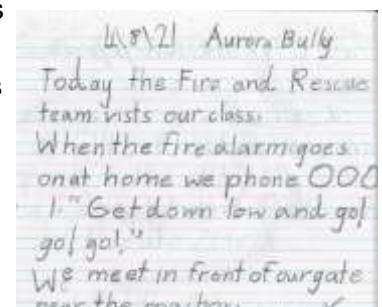 s
4\8\21 Aurora Bully
s
Today the Fire and Rescue
team vists our class.
When the fire alarm goes
onat home we phone 000
1. "Get down low and go!
go! go!"
We meet in front of our gate
near the